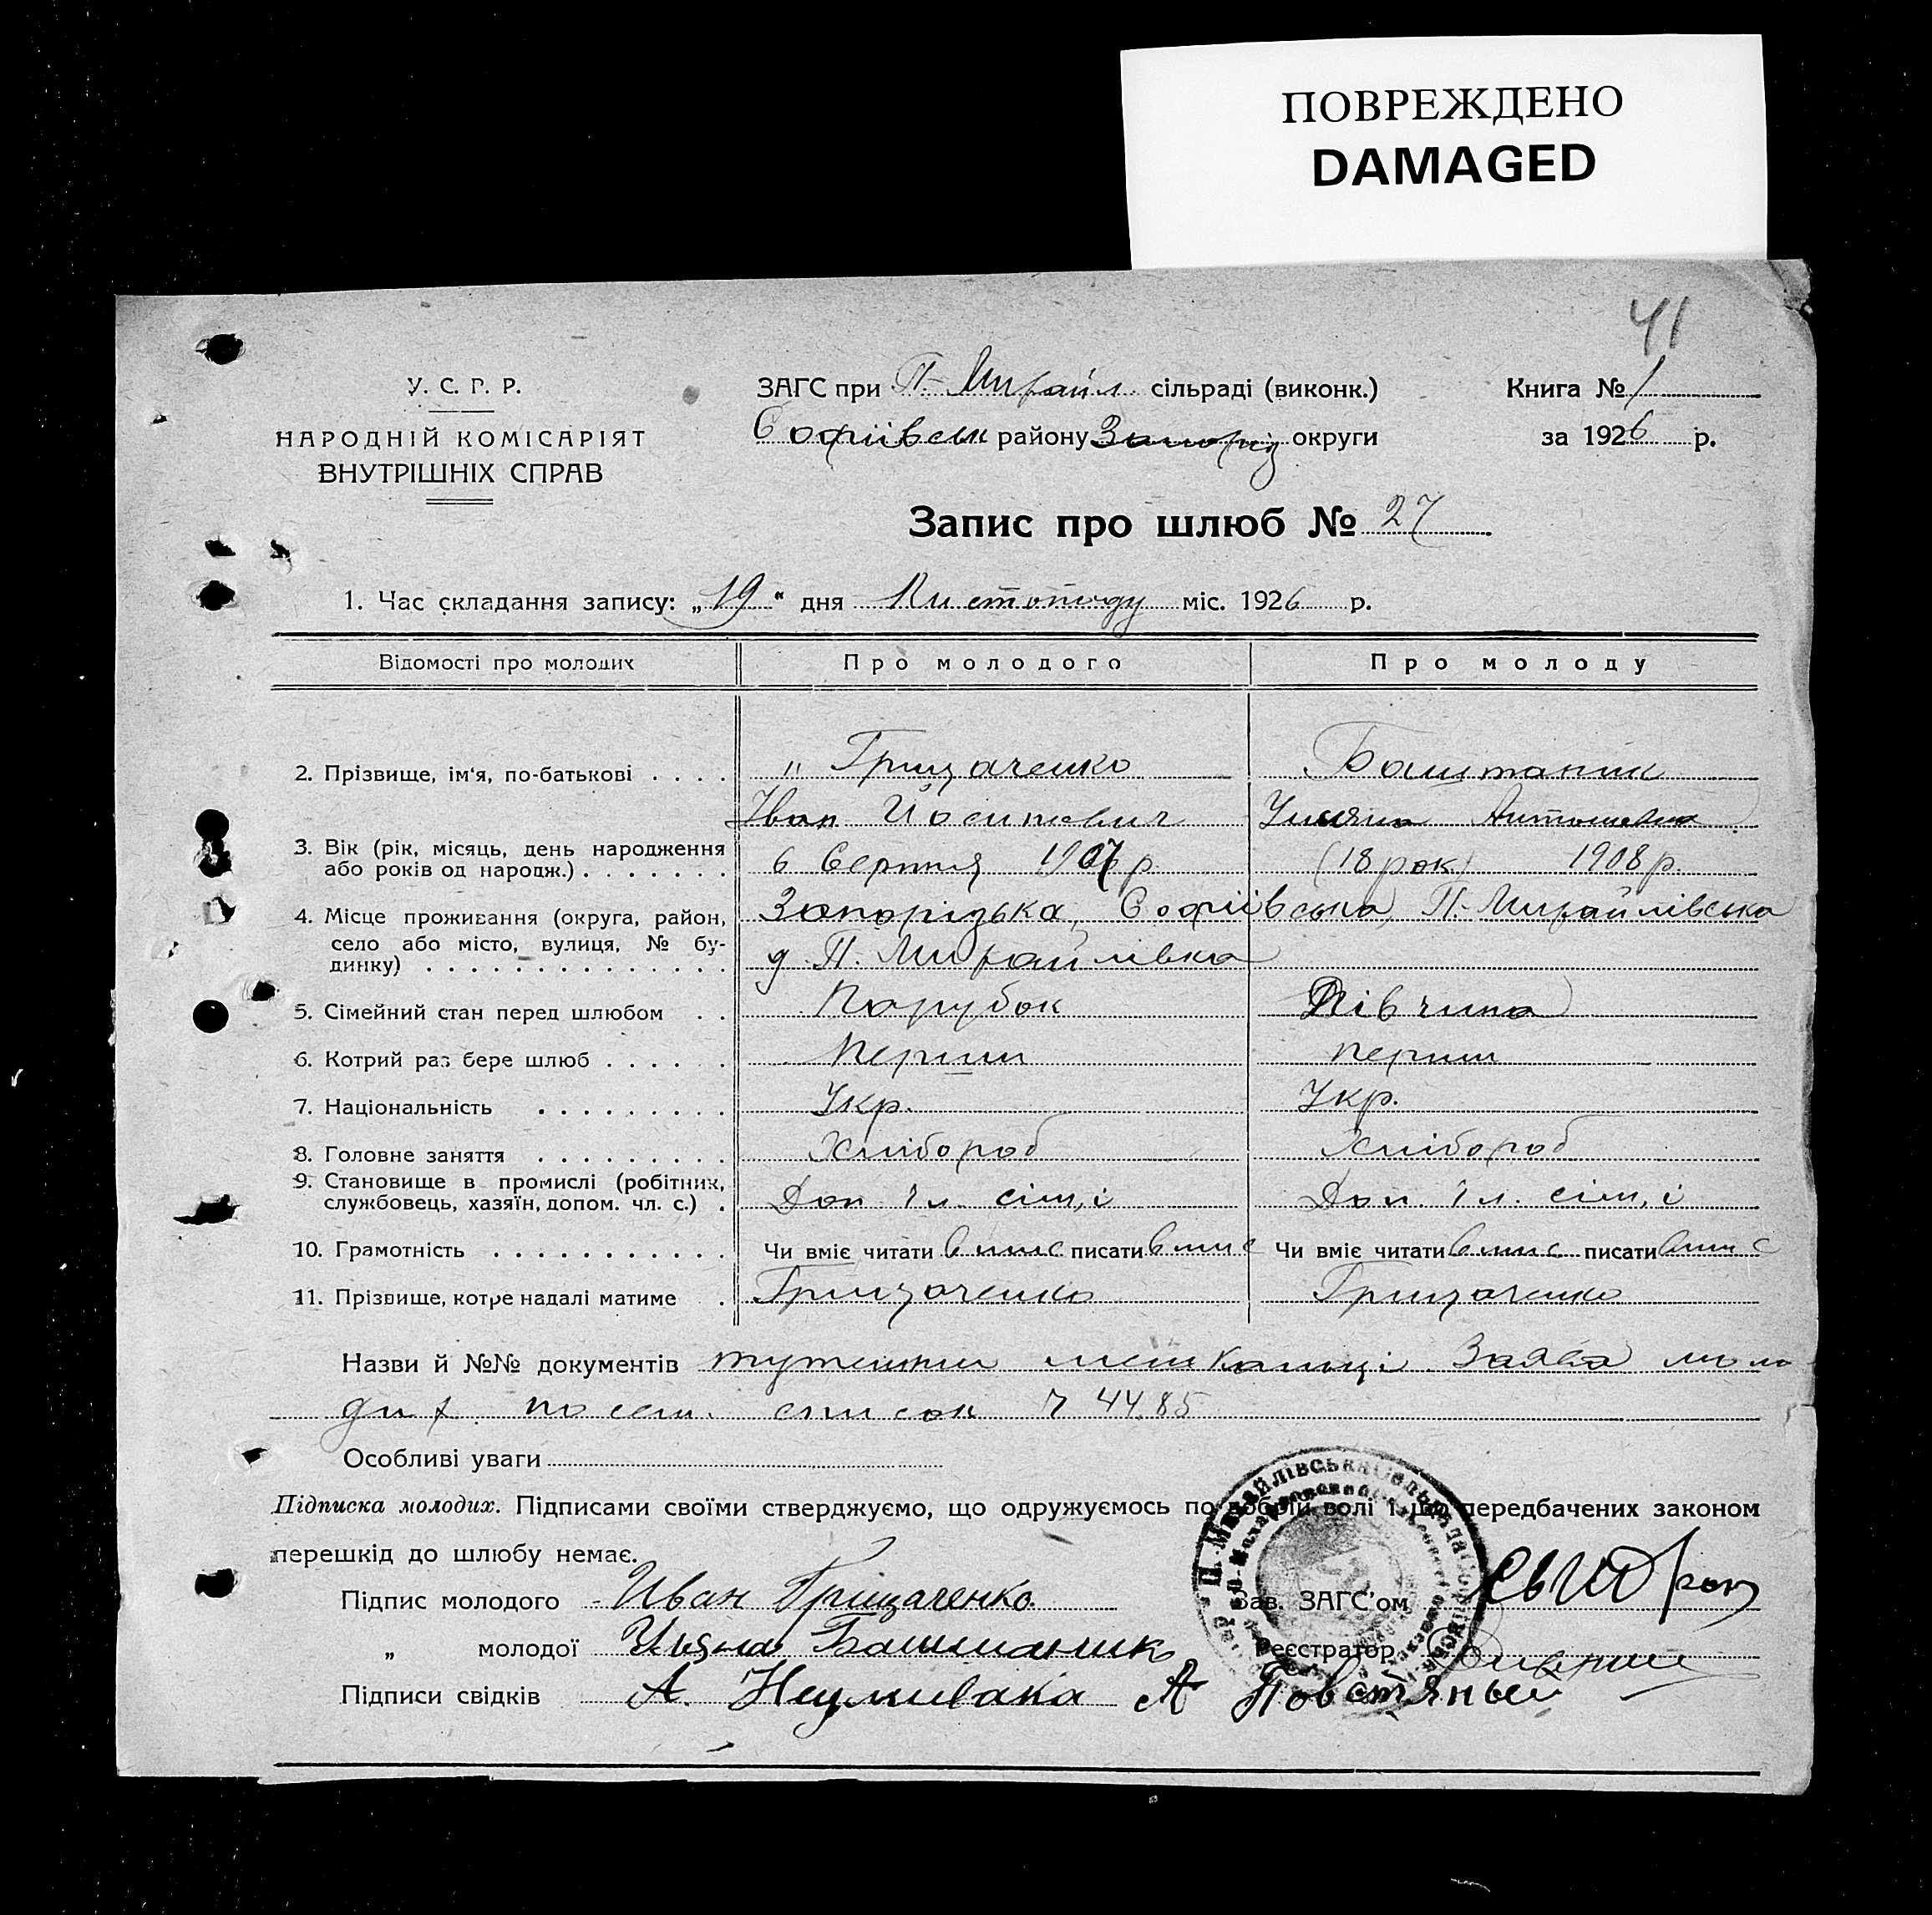 ПОВРЕЖДЕНО
DAMAGED
41
У. С. Р. Р.
НАРОДНІЙ КОМІСАРІЯТ
ВНУТРІШНІХ СПРАВ
ЗАГС при П.-Михайл. сільраді (виконк.)
Софіівськ району Запоріз округи
Книга № 1
за 1926 р.
Запис про шлюб № 27
1. Час складання запису: „19“ дня Листопаду міс. 1926 р.
Відомості про молодих
Про молодого
Про молоду
2. Прізвище, ім'я, по-батькові
Грищаченко
Баштаник
Іван Йосипович
Уляна Антоновна
3. Вік (рік, місяць, день народження
або років од народж.)
6 Серпня 1907 р
(18 рок) 1908 р.
4. Місце проживання (округа, район,
село або місто, вулиця, № бу-
динку)
Запорізька, Софіівська, П.-Михайлівська
д. П. Михайлівка
5. Сімейний стан перед шлюбом
Парубок
Дівчина
6. Котрий раз бере шлюб
Перший
перший
7. Національність
Укр.
Укр.
8. Головне заняття
Хлібороб
Хлібороб
9. Становище в промислі (робітник,
службовець, хазяїн, допом. чл. с.)
Доп. чл. сім,і
Доп. чл. сім,і
10. Грамотність
Чи вміє читати вміє писати вміє
Чи вміє читати вміє писати вміє
11. Прізвище, котре надалі матиме
Грищаченко
Грищаченко
Назви й №№ документів тутешни мешканці. Заява моло
дих. по сем. список Ч 4485
Особливі уваги
Підписка молодих. Підписами своїми стверджуємо, що одружуємось по добрій волі і що передбачених законом
перешкід до шлюбу немає.
Підпис молодого Иван Грищаченко
Зав. ЗАГС'ом
„ молодої Уляна Баштаник
Реєстратор
Підписи свідків А. Неумивака А Повстяный